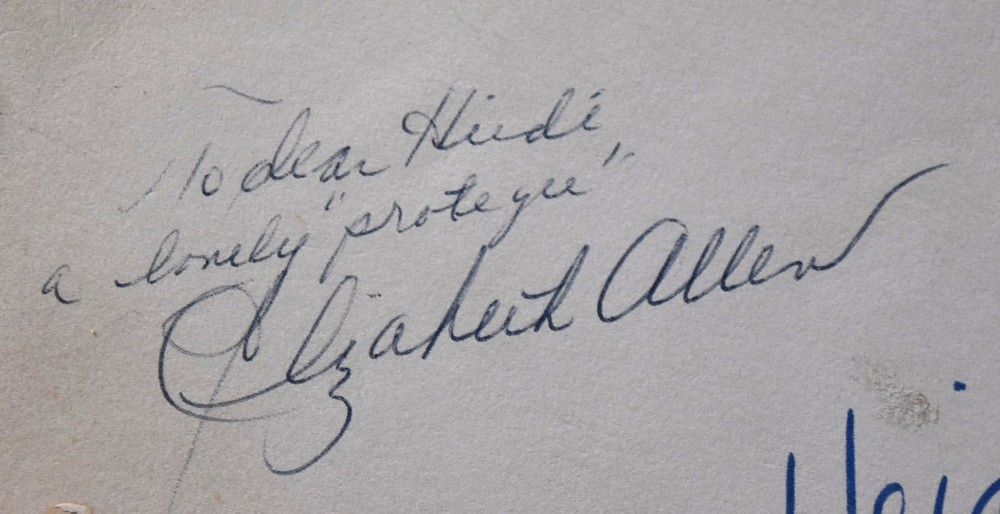 To dear Heidi,
a lonely "protegee"
Elizabeth Allen
Hei